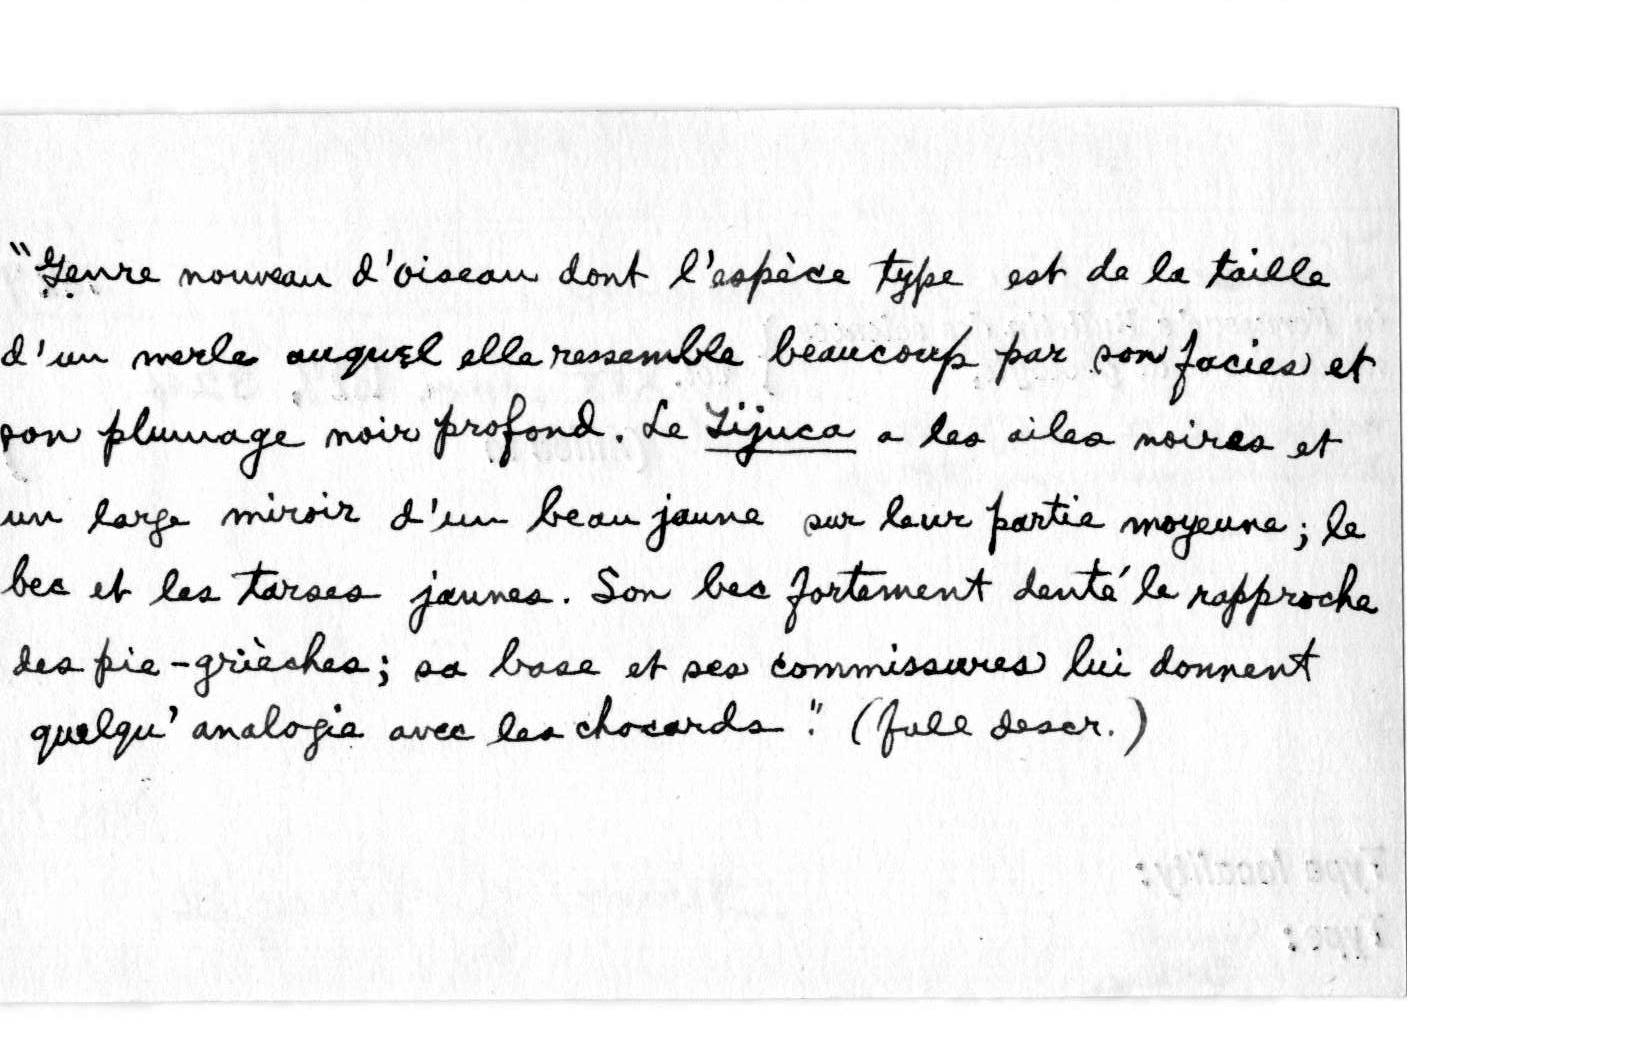 "Genre nouveau d'oiseau dont l'espèce type est de la taille
d'un merle auquel elle ressemble beaucoup par son facies et
son plumage noir profond. Le Tijuca a les ailes noires et
un large miroir d'un beau jaune sur leur partie moyenne; le
bec et les tarses jaunes. Son bec fortement denté le rapproche
des pie-grièches; sa base et ses commissures lui donnent
quelqu' analogie avec les chocards." (full descr.)
Type locality:
Type: